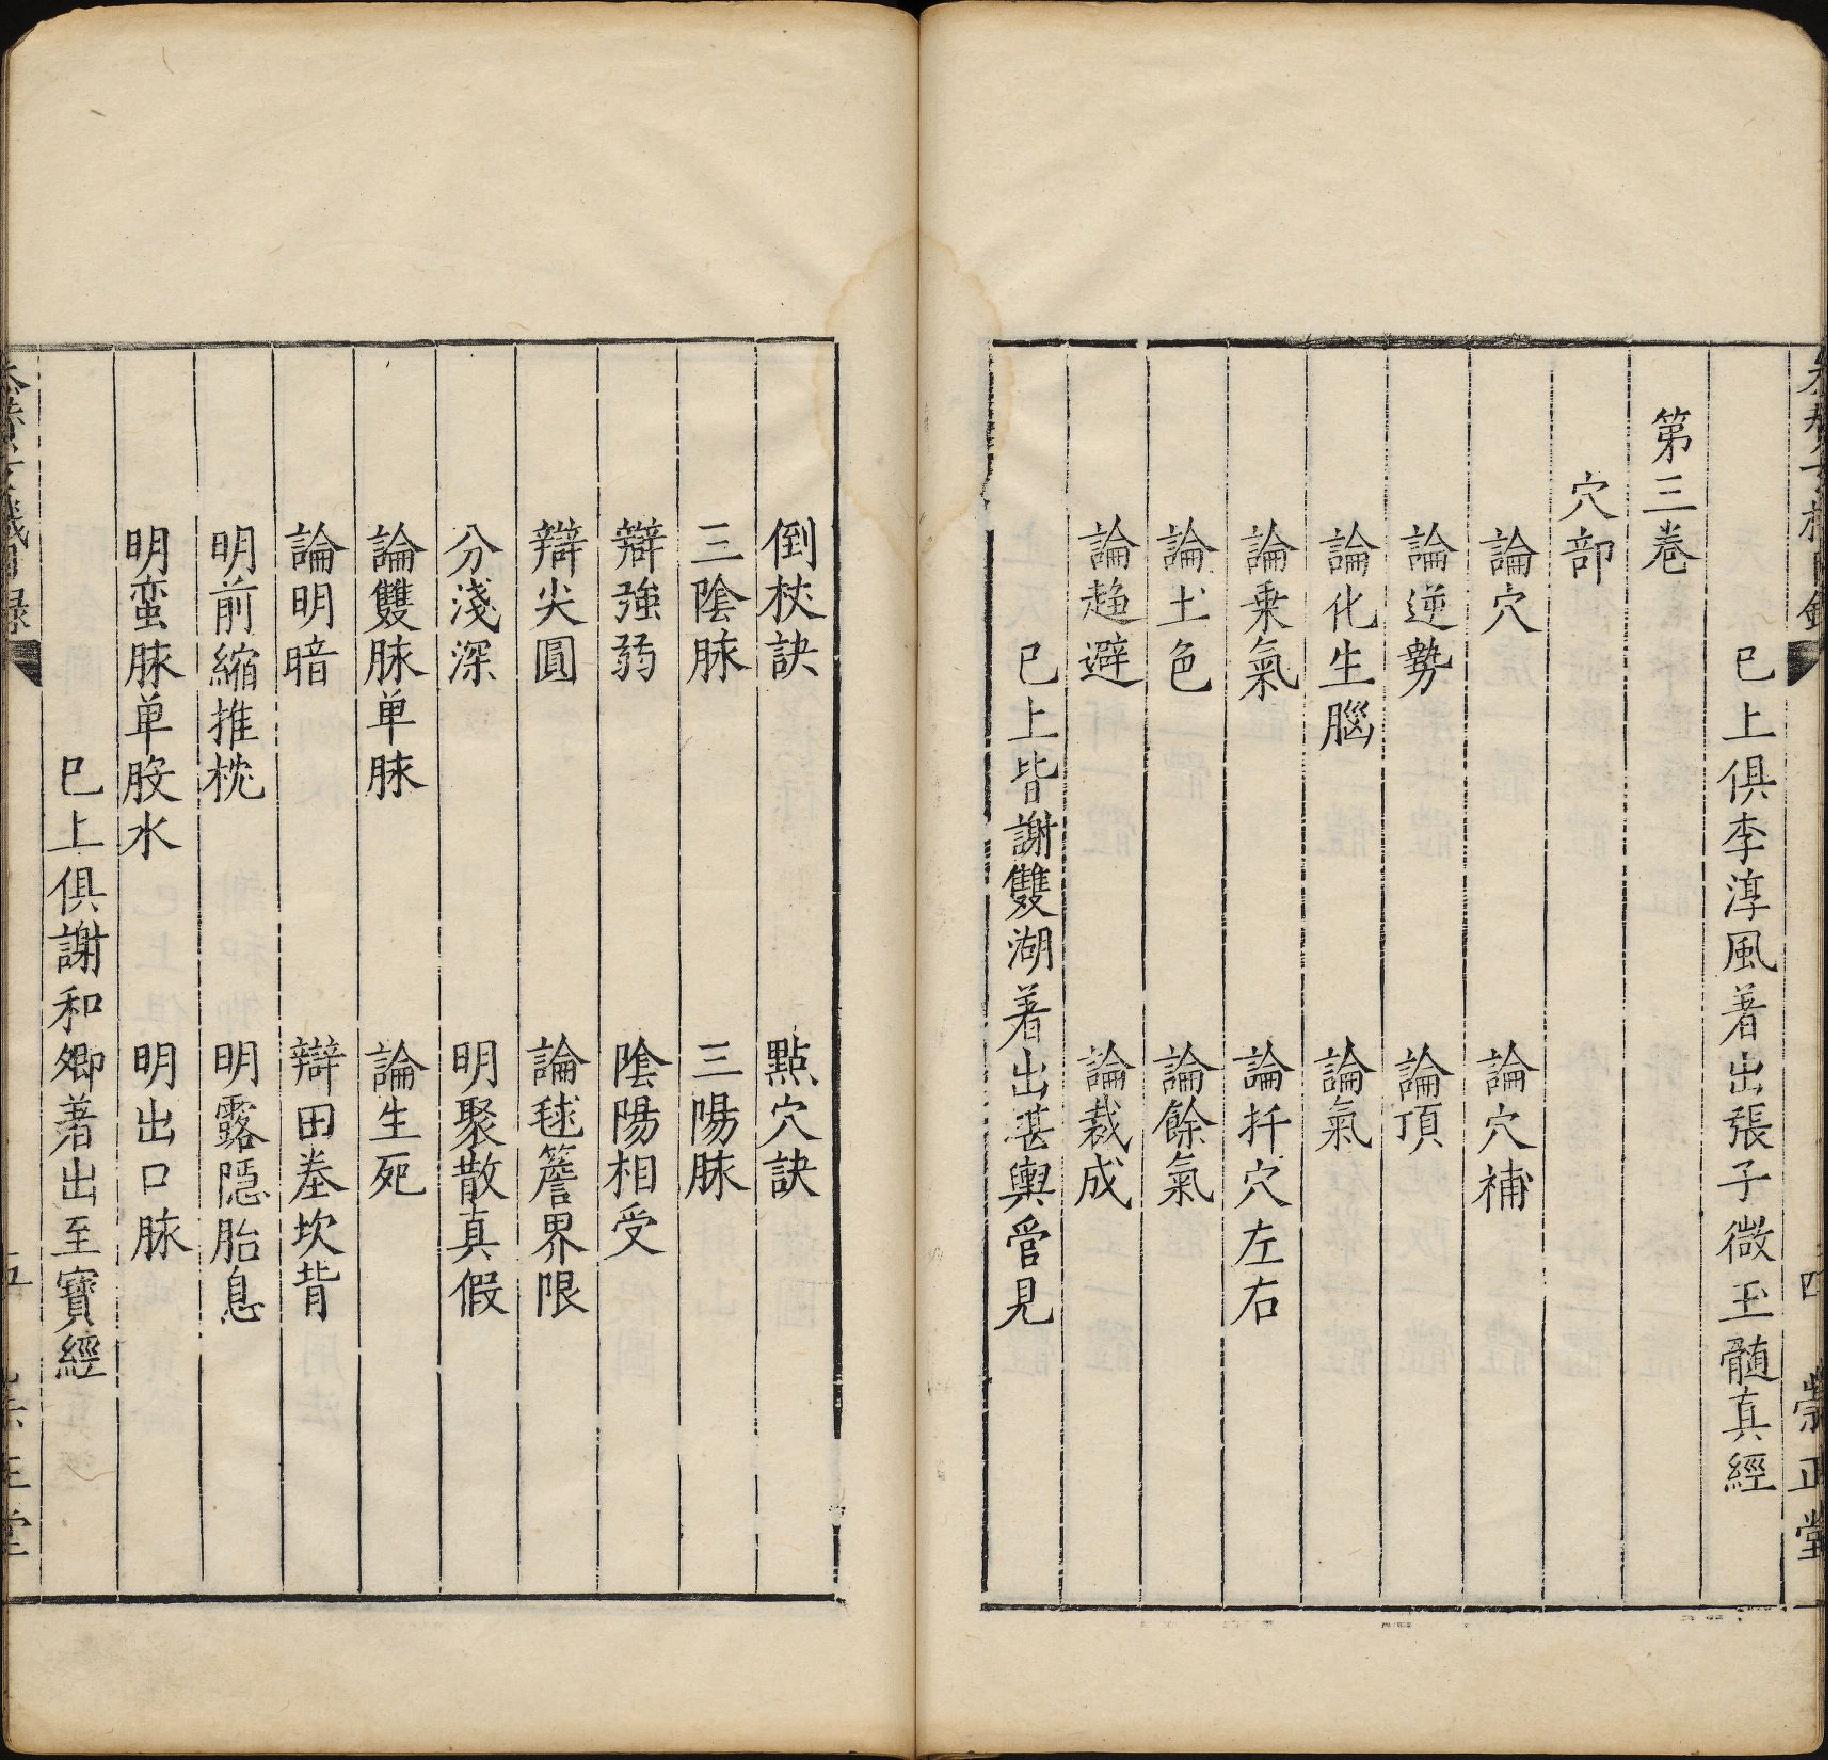 已上俱李淳風著出張子微玉髓真經
第三卷
穴部
論穴　論穴補
論逆勢　論頂
論化生腦　論氣
論乗氣　論扦穴左右
論土色　論餘氣
論趨避　論裁成
已上皆謝雙湖著出堪輿管見
四
崇正堂
倒杖訣　點穴訣
三陰脉　三陽脉
辯強弱　陰陽相受
辯尖圓　論毬簷界限
分淺深　明聚散真假
論雙脉单脉　論生死
論明暗　辯田塍坎背
明前縮推枕　明露隠胎息
明蛮脉单股水　明出口脉
已上俱謝和卿著出至寶經